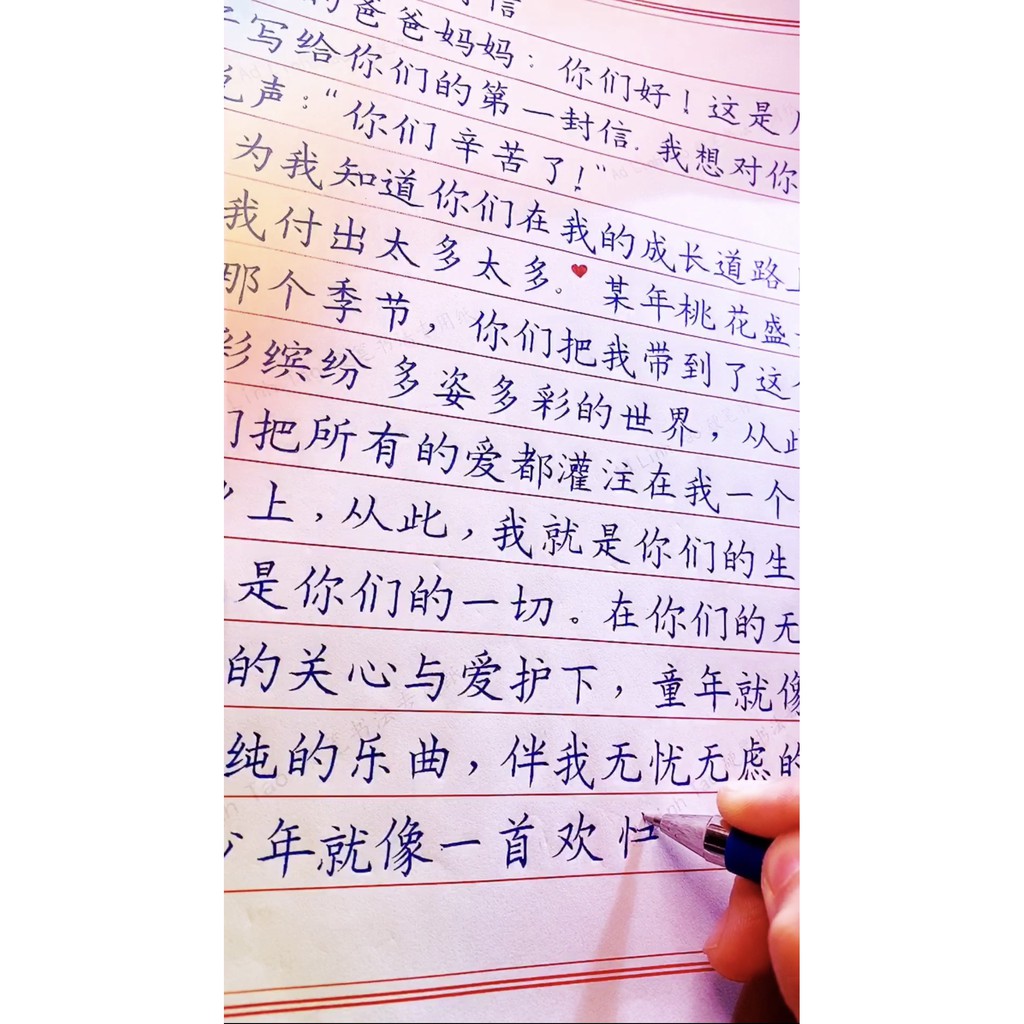 信
的爸爸妈妈：你们好！这是
写给你们的第一封信.我想对你
声：“你们辛苦了！”
为我知道你们在我的成长道路上
我付出太多太多。❤某年桃花盛
那个季节，你们把我带到了这个
彩缤纷多姿多彩的世界，从此
们把所有的爱都灌注在我一个
上，从此，我就是你们的生
是你们的一切。在你们的无
的关心与爱护下，童年就像
纯的乐曲，伴我无忧无虑的
少年就像一首欢